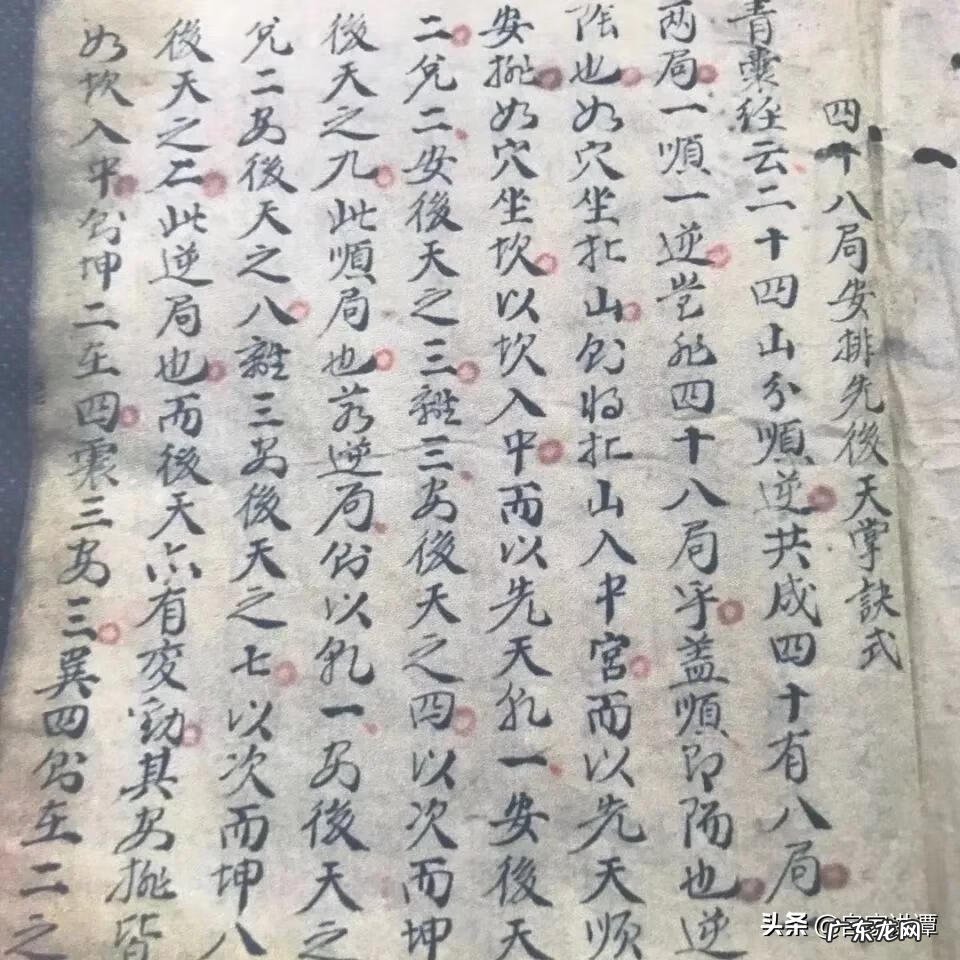 四十八局安排先後天掌訣式
青囊经云二十四山分順逆共成四十有八局
两局一順一逆岂非四十八局乎盖順即陽也逆
陰也如穴坐北山则将北山入中宫而以先天順
安排如穴坐坎以坎入中而以先天乹一安後天
二兌二安後天之三離三安後天之四以次而坤
後天之九此順局也若逆局则以乹一安後天之
兌二安後天之八離三安後天之七以次而坤八
後天之二此逆局也而後天亦有变動其安排皆
如坎入中则坤二在四震三安三巽四则在二之
头条
广东龙网